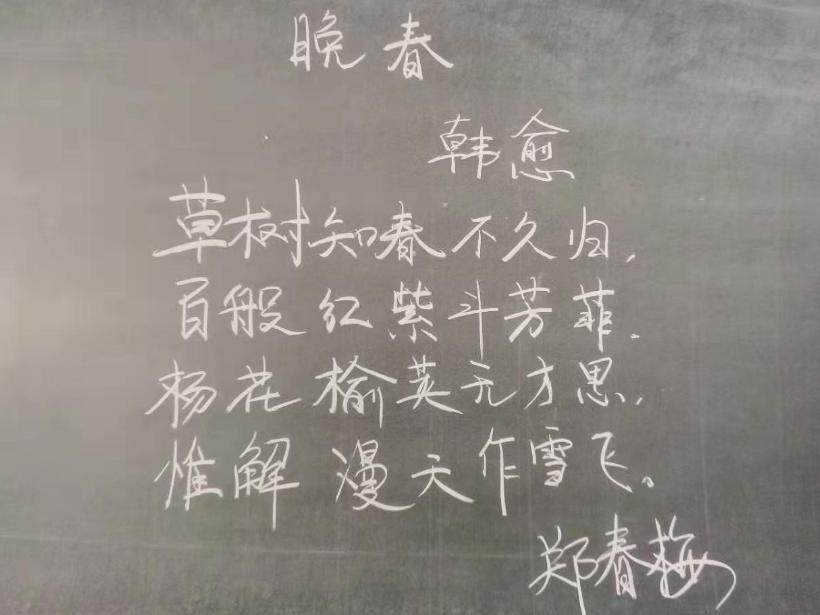 晚春
韩愈
草树知春不久归,
百般红紫斗芳菲.
杨花榆英无才思,
惟解漫天作雪飞。
郑春梅